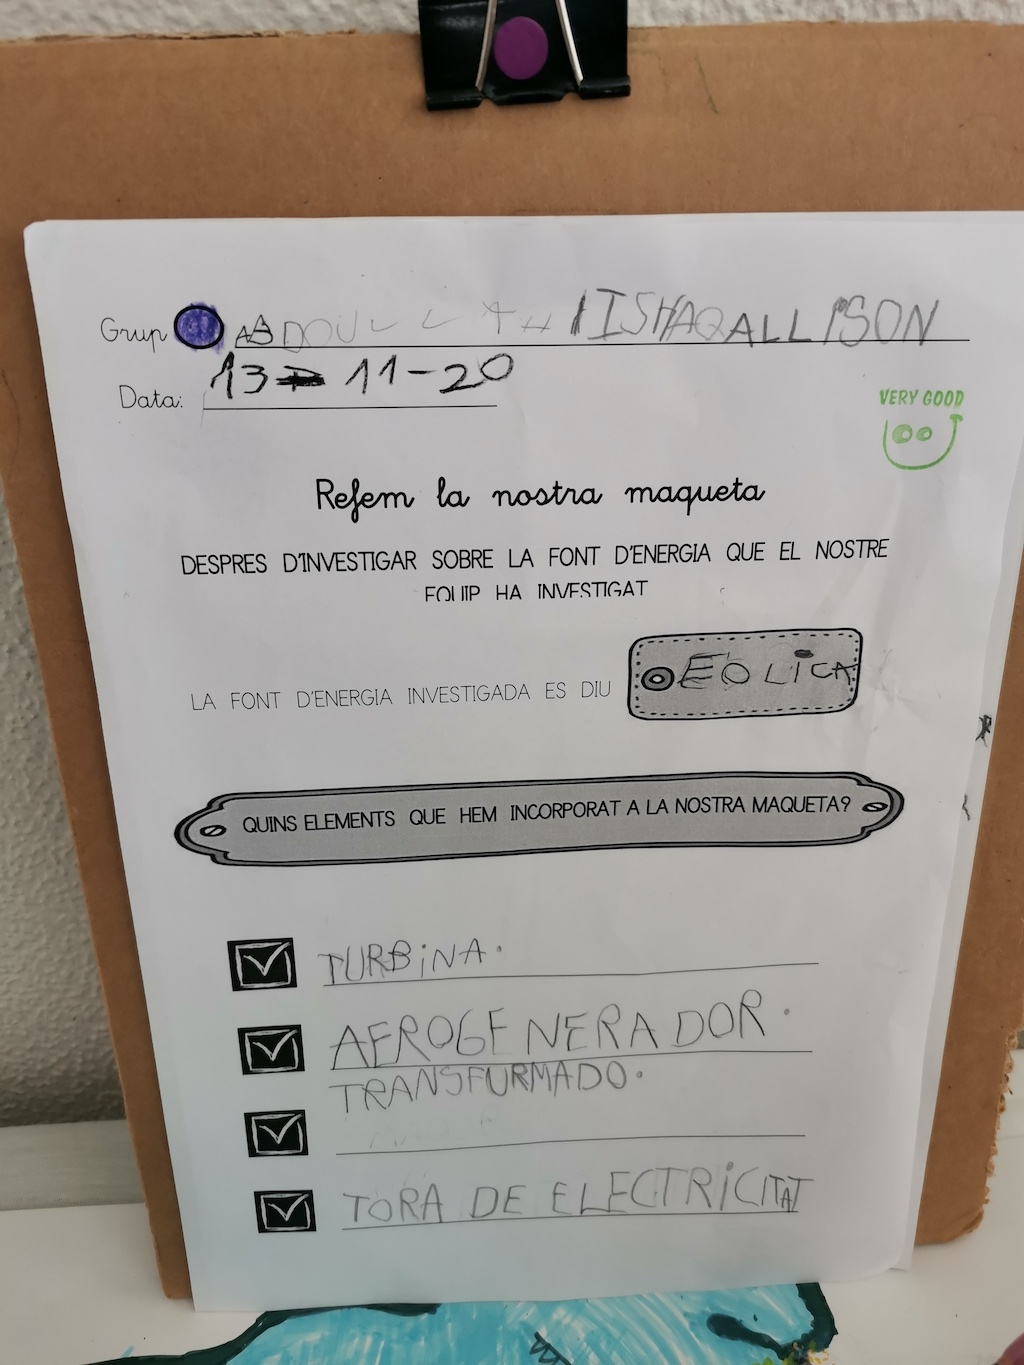 Grup ISHAQ ALLISON
Data: 13-11-20
VERY GOOD
Refem la nostra maqueta
DESPRES D'INVESTIGAR SOBRE LA FONT D'ENERGIA QUE EL NOSTRE
EQUIP HA INVESTIGAT
LA FONT D'ENERGIA INVESTIGADA ES DIU EOLICA
QUINS ELEMENTS QUE HEM INCORPORAT A LA NOSTRA MAQUETA?
TURBINA.
AEROGENERADOR.
TRANSFURMADO.
TORA DE ELECTRICITAT